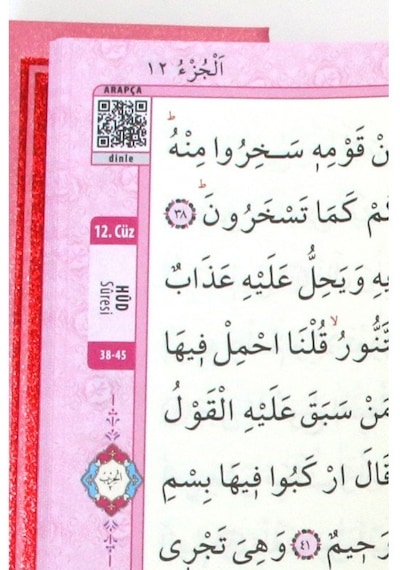 اَلْجُزْءُ ١٢
ARAPÇA
dinle
12. Cüz
HÛD
Sûresi
38-45
قَوْمِهٖ سَخِرُوا مِنْهُۜ
كَمَا تَسْخَرُونَۜ ﴿٣٨﴾
وَيَحِلُّ عَلَيْهِ عَذَابٌ
قُلْنَا احْمِلْ فٖيهَا
مَنْ سَبَقَ عَلَيْهِ الْقَوْلُ
قَالَ ارْكَبُوا فٖيهَا بِسْمِ
رَحٖيمٌ ﴿٤١﴾ وَهِىَ تَجْرٖى